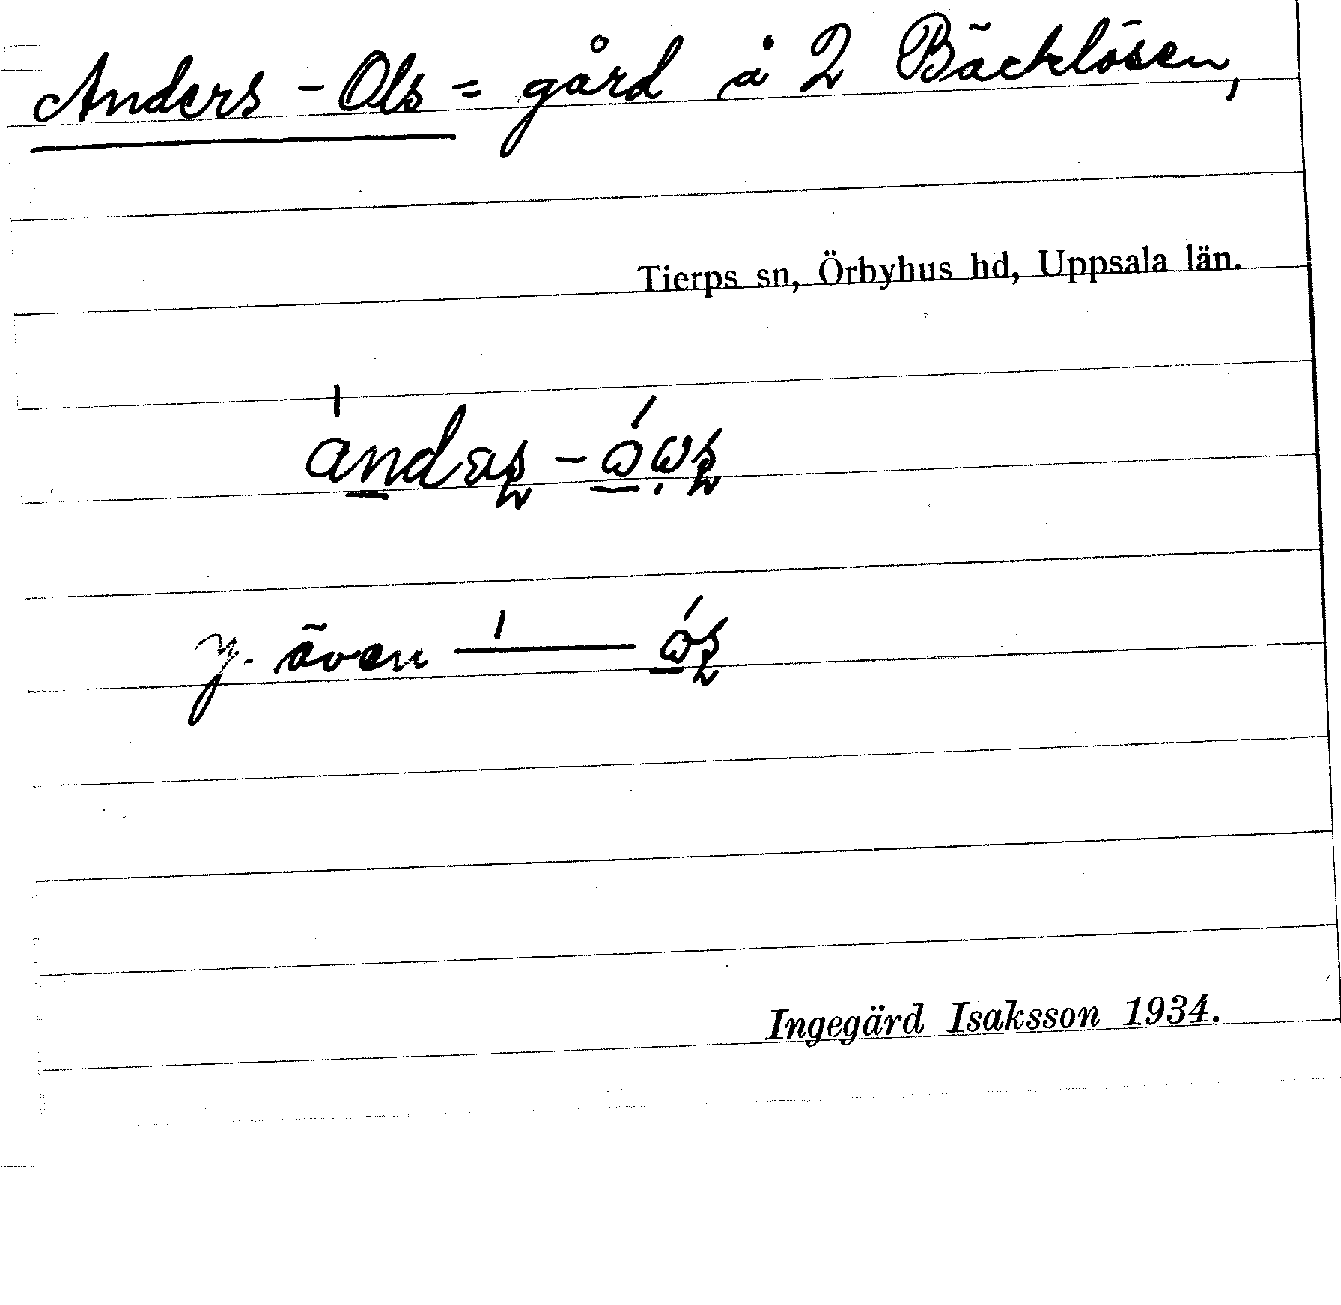 Anders - Ols = gård å 2 Bäcklösen,
Tierps sn, Örbyhus hd, Uppsala län.
y. även
Ingegärd Isaksson 1934.